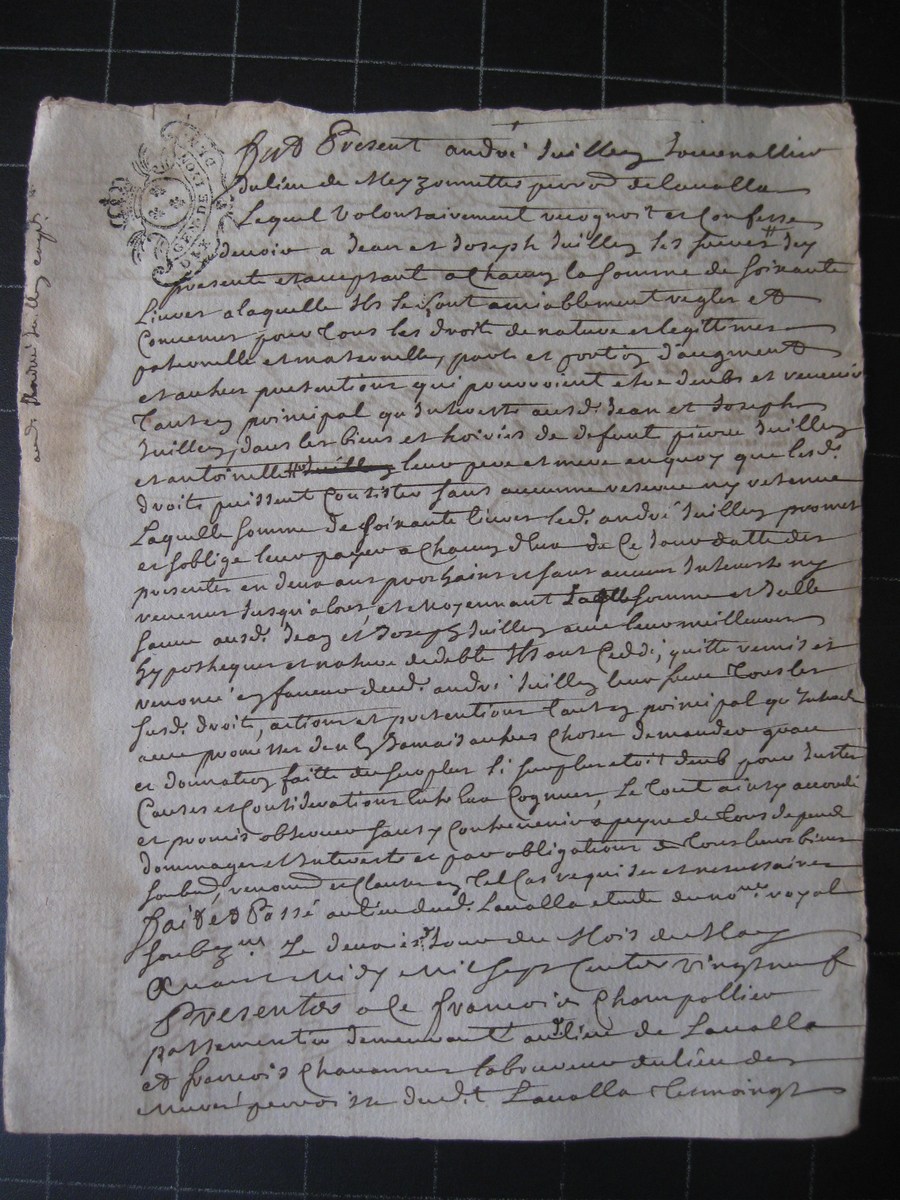 GEN. DE LYON
Fut Present andré Juilley Journallier
du lieu de Meyzonnettes parrod. de Lavalla
Lequel Volontairement recognoit et Confesse
devoir a Jean et Joseph Juilley ses freres Icy
presents et acceptant a Chacun la somme de soixante
Livres a laquelle Ils se sont amiablement regles et
Convenus pour Tous les droits de nature et legittimes
paternelle et maternelle, part et portion d'augment
et autres pretentions qui pouvoient etre deubs et revenir
Tant en principal qu'Interests ausd. Jean et Joseph
Juilley, dans les biens et hoiries de defunt pierre Juilley
et antoinette leur pere et mere en quoy que lesd.
droits puissent Consister sans aucunne reserve ny retenue
Laquelle somme de soixante livres led. andré Juilley promet
et soblige leur payer a Chacun d'Eux de Ce Jour datte des
presentes en deux ans prochains et sans aucun Interests ny
revenus Jusqu'alors, et Moyennant Laqlle somme et Icelle
sauve ausd. Jean et Joseph Juilley avec leurs meilleures
hypotheques et nature de debte Ils ont Ceddé, quitté remis et
renoncé en faveur dud. andré Juilley leur frere Tous les
susd. droits, actions et pretentions Tant en principal qu'Interets
avec promesses de n'En Jamais autres Choses demander
et donnation faitte du surplus si surplus etoit deub pour Justes
Causes et Considerations entre Eux Cognues, Le Tout ainsy accordé
et promis observer sans y Contrevenir a peyne de Tous depens
dommages et Interests et par obligations de Tous leurs biens
soubm. renond. et Clauses en Tel Cas requises et necessaires
Fait et Passé au lieu dud. Lavalla etude du no.re royal
soubz.né Le Jour du Mois de May
avant Midy Mil sept Cents vingt neuf
Presents a Ce françois Champallier
passementier demeurant au lieu de Lavalla
et françois Chavannes laboureur du lieu des
parroisse dud.t Lavalla Tesmoings